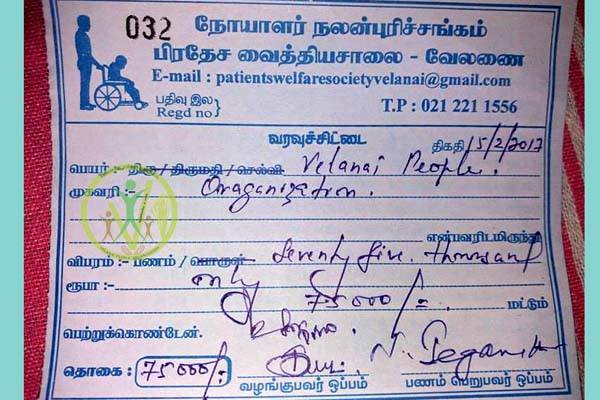 032 நோயாளர் நலன்புரிச்சங்கம்
பிரதேச வைத்தியசாலை - வேலணை
E-mail : patientswelfaresocietyvelanai@gmail.com
பதிவு இல
Regd no } T.P : 021 221 1556
வரவுச்சிட்டை
திகதி 15/2/2017
பெயர் :- திரு / திருமதி / செல்வி Velanai People.
முகவரி :- Oraganization.
என்பவரிடமிருந்து
விபரம் :- பணம் / பொருள் Seventy five thousand
ரூபா :- only 75000/= மட்டும்
பெற்றுக்கொண்டேன்.
தொகை : 75000/=
வழங்குபவர் ஒப்பம் பணம் பெறுபவர் ஒப்பம்